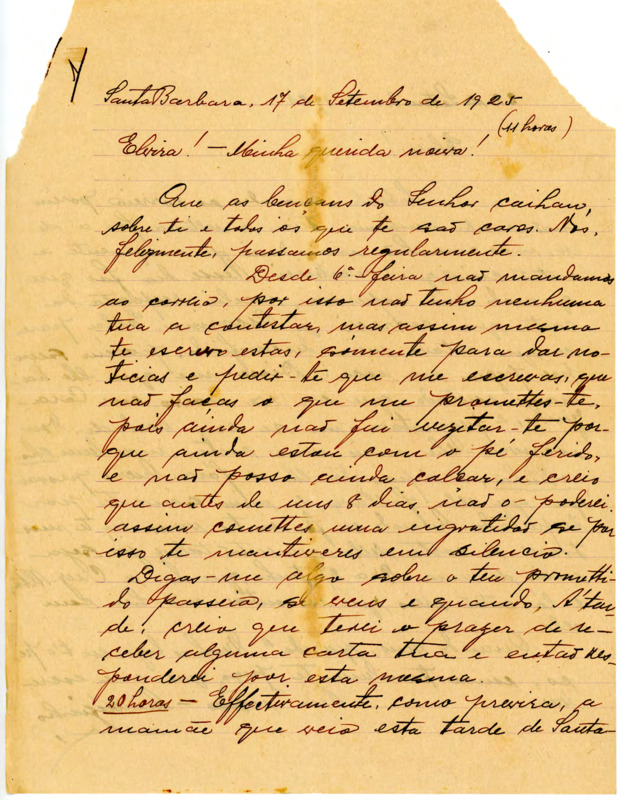 Santa Barbara, 17 de Setembro de 1925
(11 horas)
Elvira! – Minha querida noiva!
Que as bençans do Senhor caiham,
sobre ti e todos os que te são caros. Nós,
felizmente, passamos regularmente.
Desde 6ª feira não mandamos
ao correio, por isso não tenho nenhuma
tua a contestar, mas, assim mesmo
te escrevo estas, sómente para dar no-
ticias e pedir-te que me escrevas, que
não faças o que me promettes-te,
pois ainda não fui vezitar-te por-
que ainda estou com o pé ferido,
e não posso ainda calçar, e creio
que antes de uns 8 dias não o poderei.
assim comettes uma ingratidão se por
isso te mantiveres em silencio.
Digas-me algo sobre o teu prometti-
do passeio, se vens e quando. A tar-
de, creio que terei o prazer de re-
ceber alguma carta tua e então res-
ponderei por esta mesma.
20 horas – Effectivamente, como previra, a
mamãe que veio esta tarde de Santa-